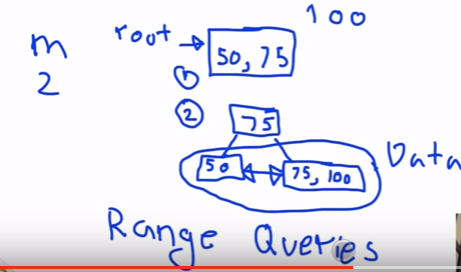 100
m root
2 50, 75
1
2 75
50 75, 100 Data
Range Queries